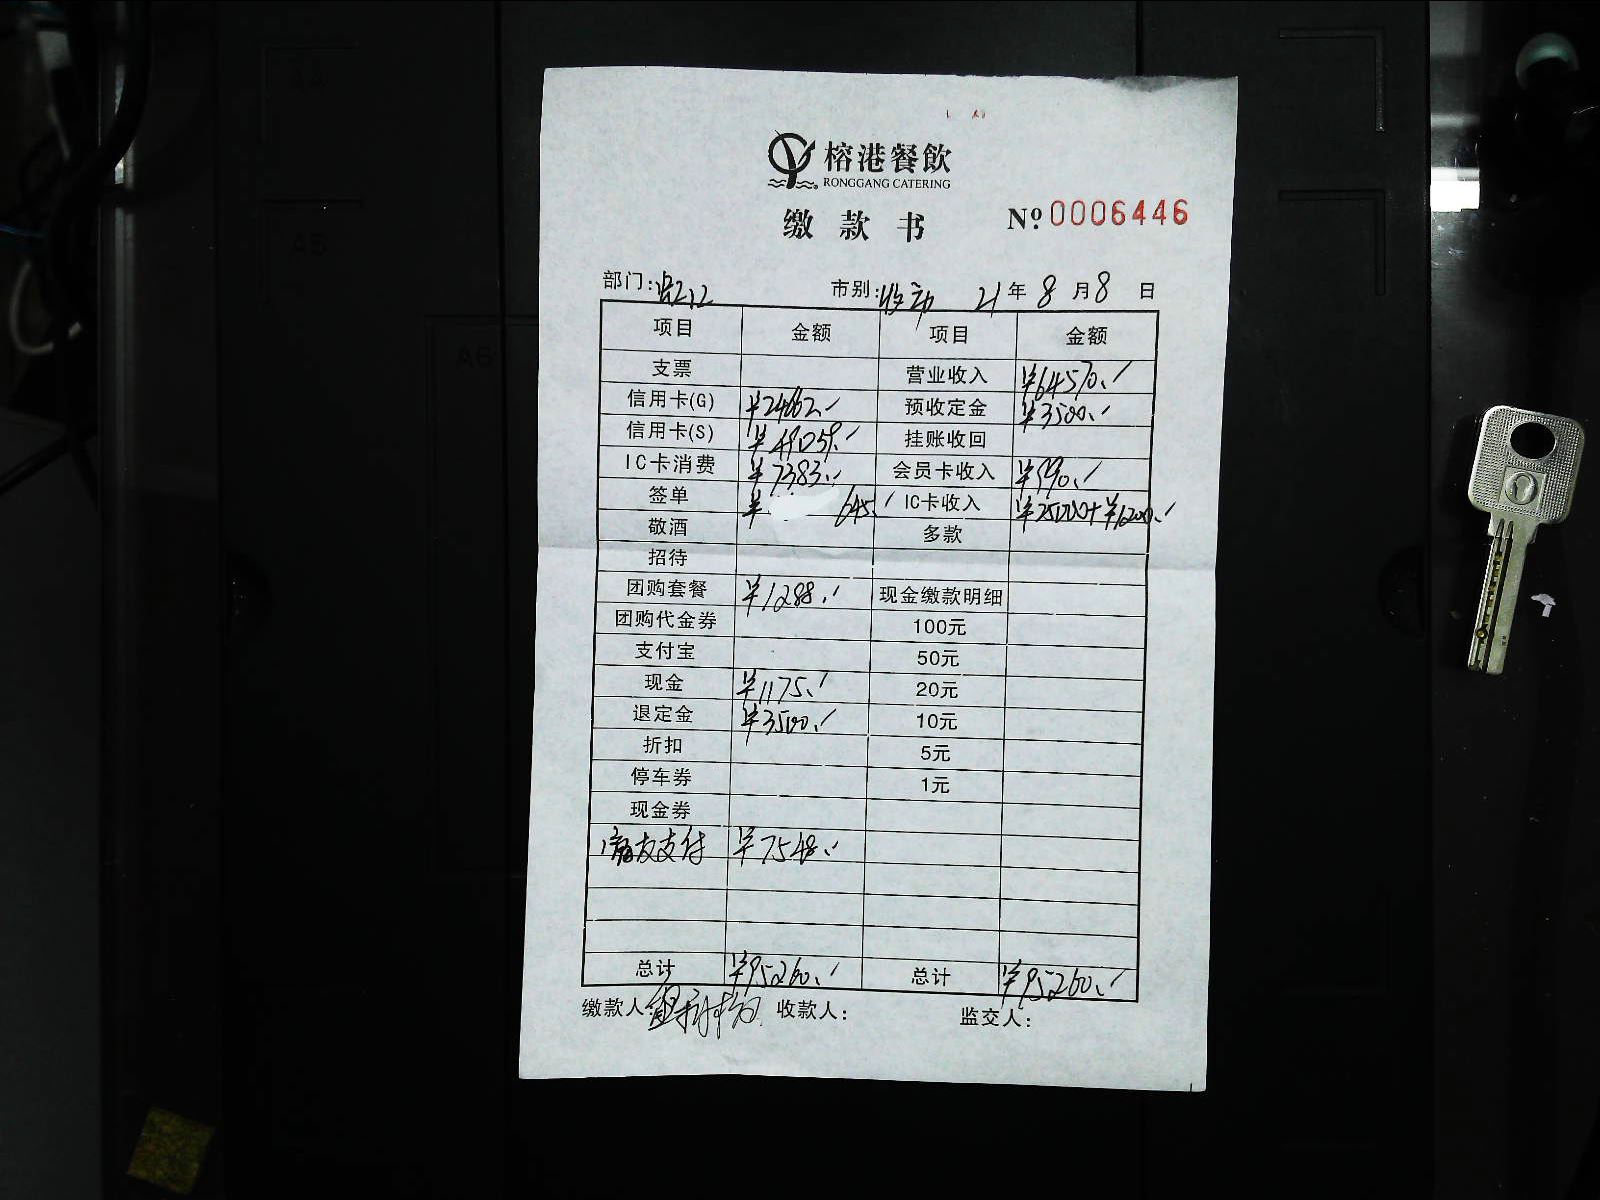 榕港餐飲
RONGGANG CATERING
缴款书 Nº 0006446
部门: 市别: 21年8月8日
项目 金额 项目 金额
支票 营业收入 ¥64570.
信用卡(G) ¥24662. 预收定金 ¥3500.
信用卡(S) ¥49059. 挂账收回
IC卡消费 ¥7383. 会员卡收入 ¥990.
签单 ¥645. IC卡收入 ¥25000+¥1200.
敬酒 多款
招待
团购套餐 ¥1288. 现金缴款明细
团购代金券 100元
支付宝 50元
现金 ¥1175. 20元
退定金 ¥3500. 10元
折扣 5元
停车券 1元
现金券
友支付 ¥7548.
总计 ¥95260. 总计 ¥95260.
缴款人: 收款人: 监交人:
A5
A6